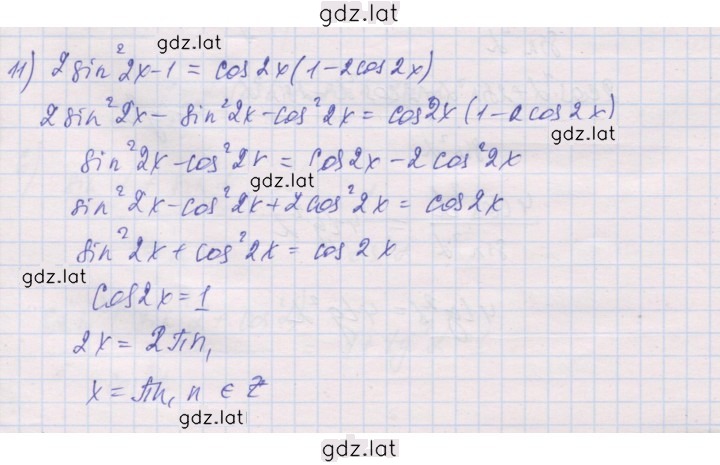 gdz.lat
gdz.lat
11) 2sin²2x-1 = cos2x(1-2cos2x)
2sin²2x - sin²2x - cos²2x = cos2x(1-2cos2x)
gdz.lat
sin²2x - cos²2x = cos2x - 2cos²2x
gdz.lat
sin²2x - cos²2x + 2cos²2x = cos2x
sin²2x + cos²2x = cos2x
gdz.lat
cos2x = 1
2x = 2πn,
x = πn, n ∈ Z
gdz.lat
gdz.lat